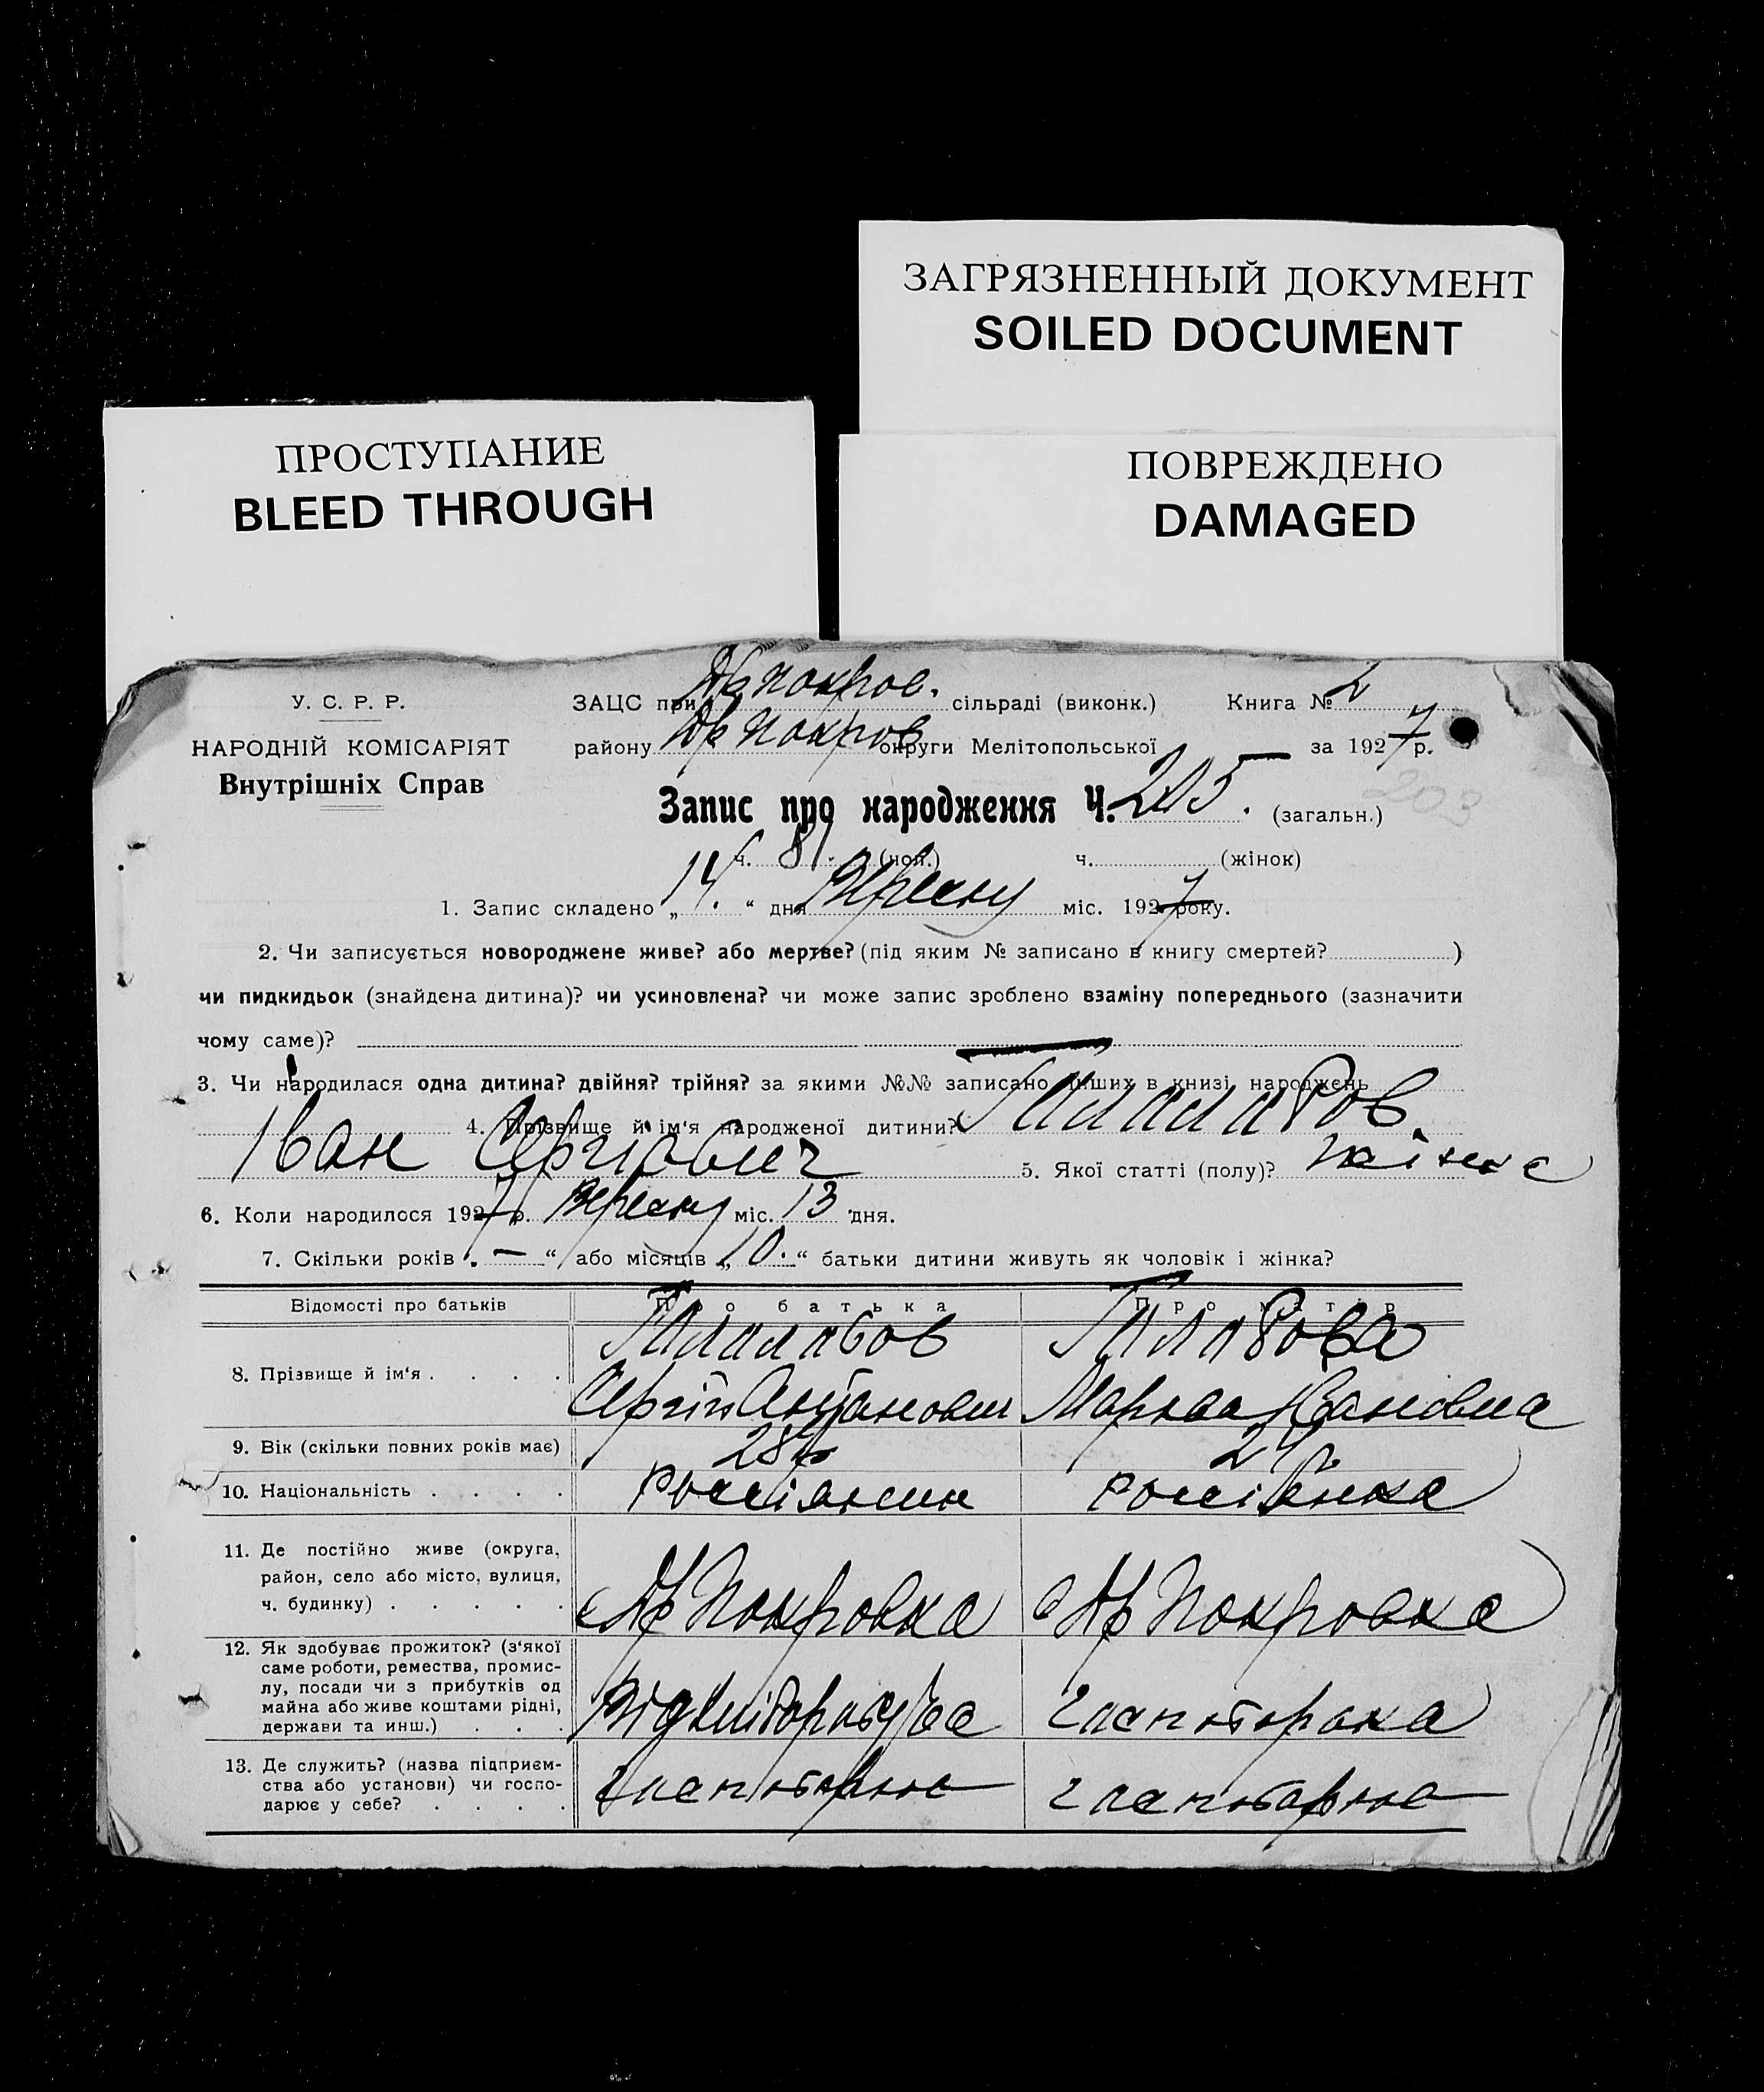 ЗАГРЯЗНЕННЫЙ ДОКУМЕНТ
SOILED DOCUMENT
ПРОСТУПАНИЕ
BLEED THROUGH
ПОВРЕЖДЕНО
DAMAGED
У. С. Р. Р.
НАРОДНІЙ КОМІСАРІЯТ
Внутрішніх Справ
ЗАЦС при покров. сільраді (виконк.) Книга № 2
району Покров округи Мелітопольської за 1927 р.
Запис про народження Ч. 205. (загальн.)
203
ч. 81. (чол.) ч. (жінок)
1. Запис складено „ 14. “ дня Вересну міс. 1927 року.
2. Чи записується новороджене живе? або мертве? (під яким № записано в книгу смертей? )
чи пидкидьок (знайдена дитина)? чи усиновлена? чи може запис зроблено взаміну попереднього (зазначити
чому саме)?
3. Чи народилася одна дитина? двійня? трійня? за якими №№ записано інших в книзі народжень
4. Прізвище й ім'я народженої дитини?
Іван Сергієвич 5. Якої статті (полу)?
6. Коли народилося 1927 р. Вересну міс. 13 дня.
7. Скільки років „ — “ або місяців „ 10. “ батьки дитини живуть як чоловік і жінка?
Відомості про батьків Про батька Про матір
8. Прізвище й ім'я . . . .
Сергій Марїя Івановна
9. Вік (скільки повних років має) 28 24
10. Національність . . . . россіянин россіянка
11. Де постійно живе (округа,
район, село або місто, вулиця,
ч. будинку) . . . . . Покровка Покровка
12. Як здобуває прожиток? (з'якої
саме роботи, ремества, промис-
лу, посади чи з прибутків од
майна або живе коштами рідні,
держави та инш.) . . .
13. Де служить? (назва підприєм-
ства або установи) чи госпо-
дарює у себе? . . . .